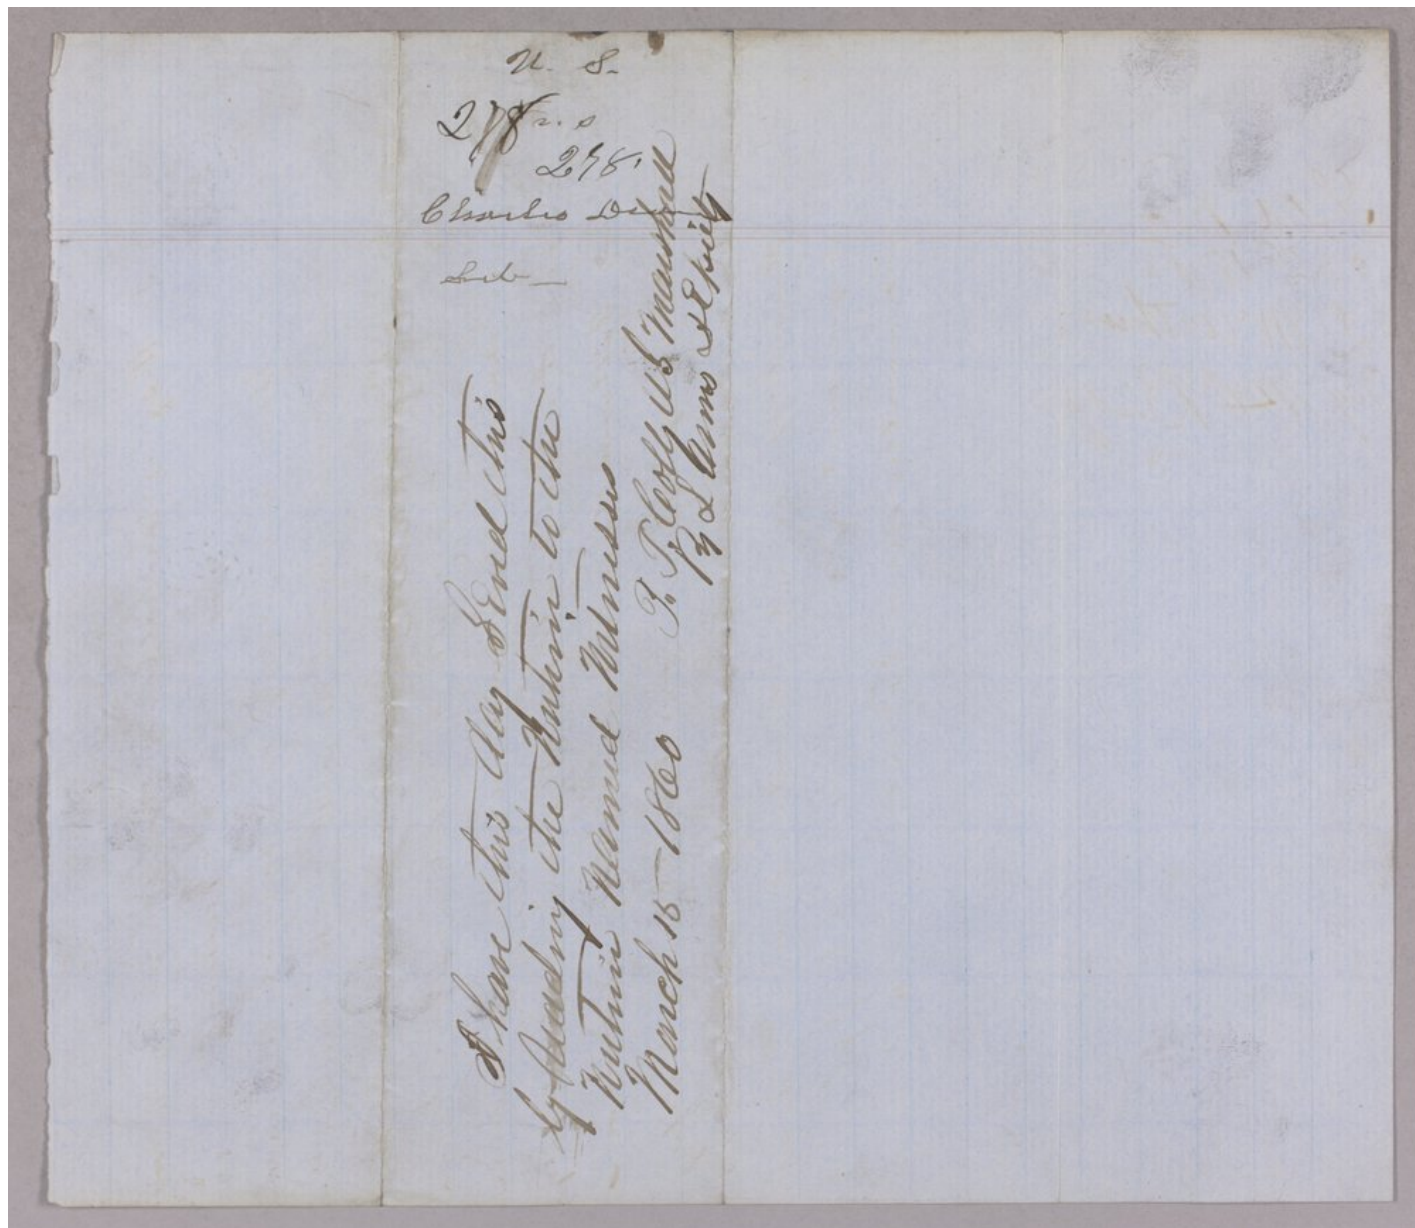 U. S.
278 v. s
278.
Charles
Sub
I have this day Served this
by Reading the Within to the
Within Named Witnesses
March 15 - 1860
US Marshall
By L Arms